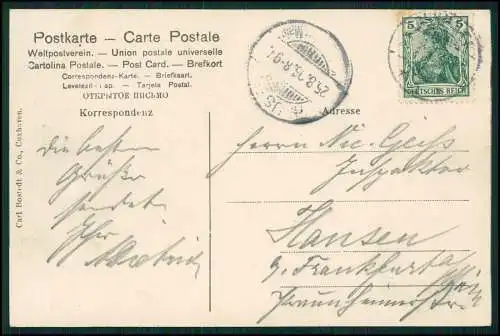 Postkarte – Carte Postale
Weltpostverein. – Union postale universelle
Cartolina Postale. – Post Card. – Brefkort
Correspondenz-Karte. – Briefkaart.
Levelező-Lap. – Tarjeta Postal.
ОТКРЫТОЕ ПИСЬМО
Korrespondenz
Adresse
5 5
DEUTSCHES REICH
25.8.06.8-9V.
Carl Bostedt & Co., Cuxhaven.
Die besten
Grüße
sendet
Ihr
Herrn Nic. Geiß
Inspektor
Hausen
b. Frankfurt a/M
Praunheimerstr.